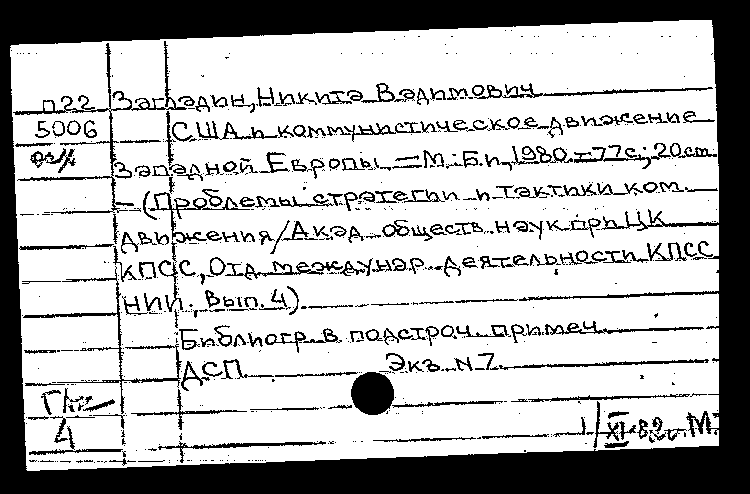 п22 Загладин, Никита Вадимович
5006 США и коммунистическое движение
Западной Европы. — М.: Б.и, 1980. — 77с; 20см
— (Проблемы стратегии и тактики ком.
движения/Акад. обществ. наук при ЦК
КПСС, Отд. междунар. деятельности КПСС
НИИ. Вып. 4).
Библиогр. в подстроч. примеч.
ДСП Экз. N 7.
4
XI-82г. М.